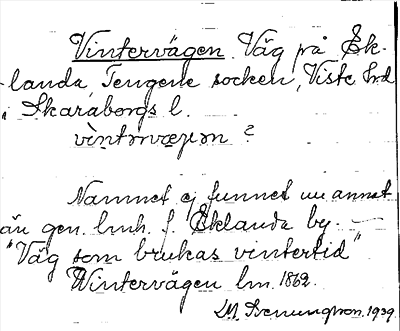 Vintervägen. Väg på Ek-
landa, Tengene socken, Viste hrd
i Skaraborgs l.
?
Namnet ej funnet uu annat
än gen. lmh. f. Eklanda by. —
"Väg som brukas vintertid"
Wintervägen lm. 1862.
1939